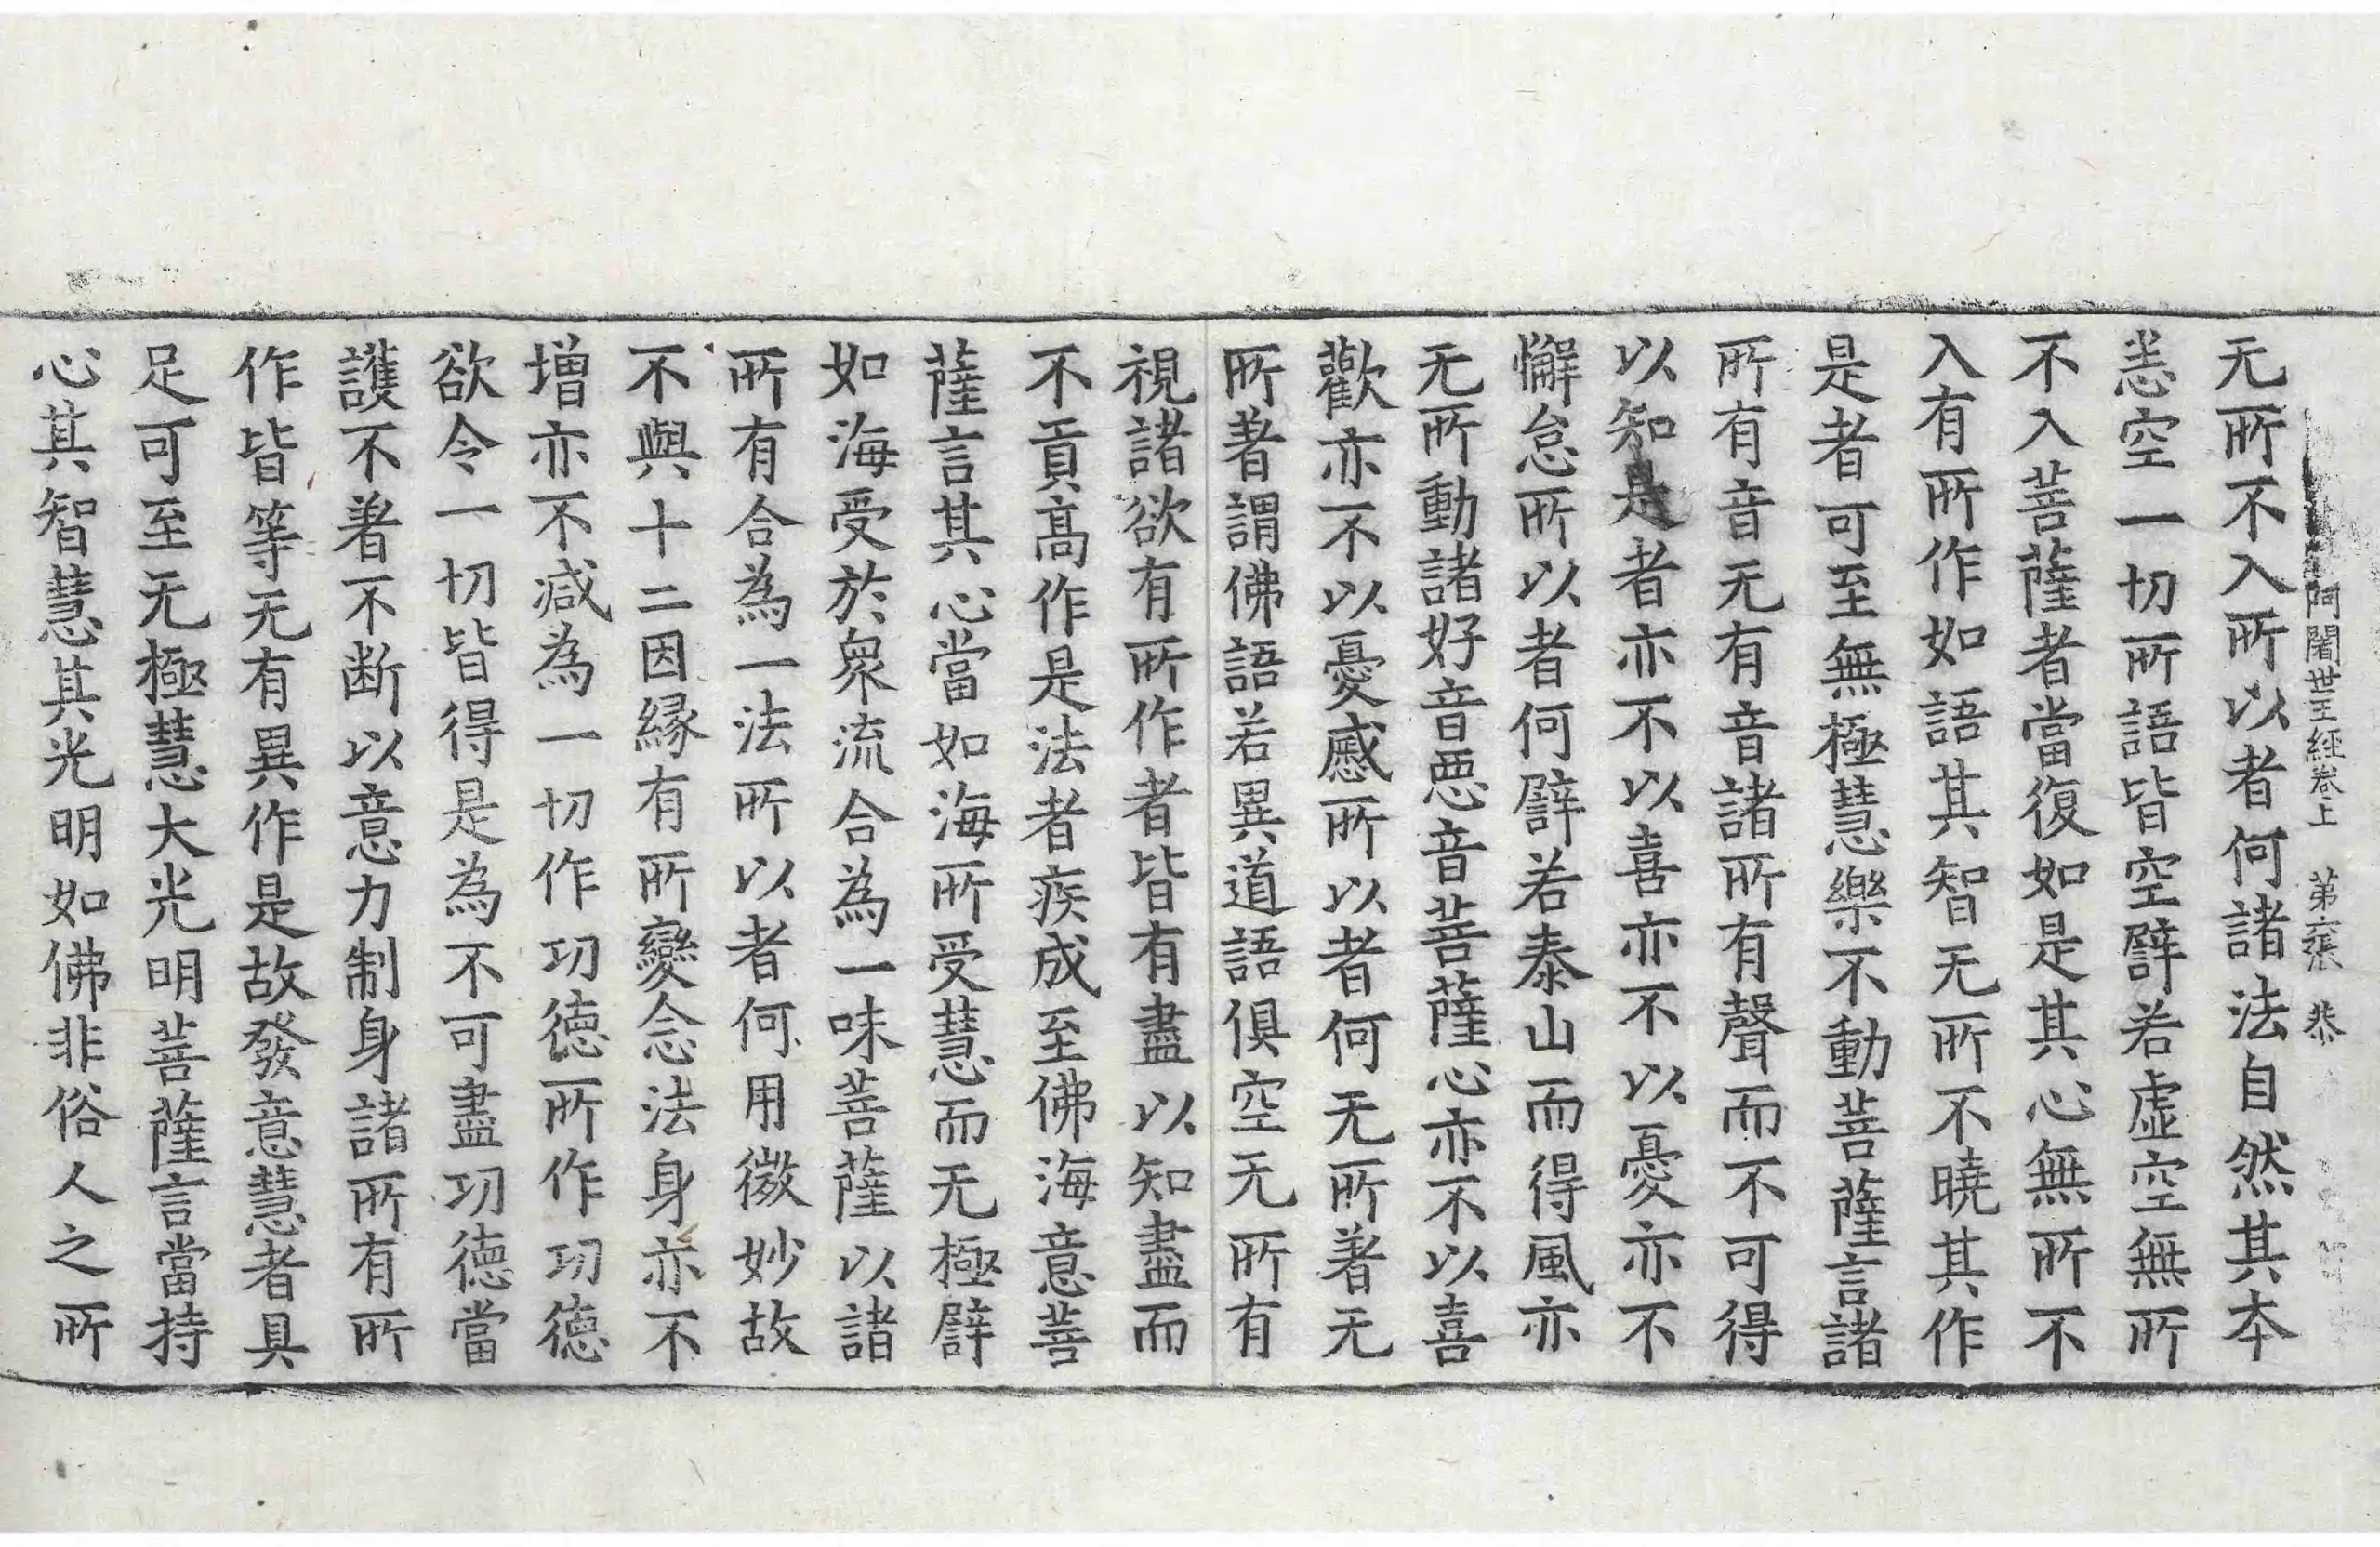 阿闍世王經卷上　第六張　恭
无所不入所以者何諸法自然其本
恚空一切所語皆空譬若虛空無所
不入菩薩者當復如是其心無所不
入有所作如語其智无所不曉其作
是者可至無極慧樂不動菩薩言諸
所有音无有音諸所有聲而不可得
以知是者亦不以喜亦不以憂亦不
懈怠所以者何譬若泰山而得風亦
无所動諸好音惡音菩薩心亦不以喜
歡亦不以憂慼所以者何无所著无
所著謂佛語若異道語俱空无所有
視諸欲有所作者皆有盡以知盡而
不貢高作是法者疾成至佛海意菩
薩言其心當如海所受慧而无極譬
如海受於衆流合為一味菩薩以諸
所有合為一法所以者何用微妙故
不與十二因緣有所變念法身亦不
增亦不減為一切作功德所作功德
欲令一切皆得是為不可盡功德當
護不著不断以意力制身諸所有所
作皆等无有異作是故發意慧者具
足可至无極慧大光明菩薩言當持
心其智慧其光明如佛非俗人之所